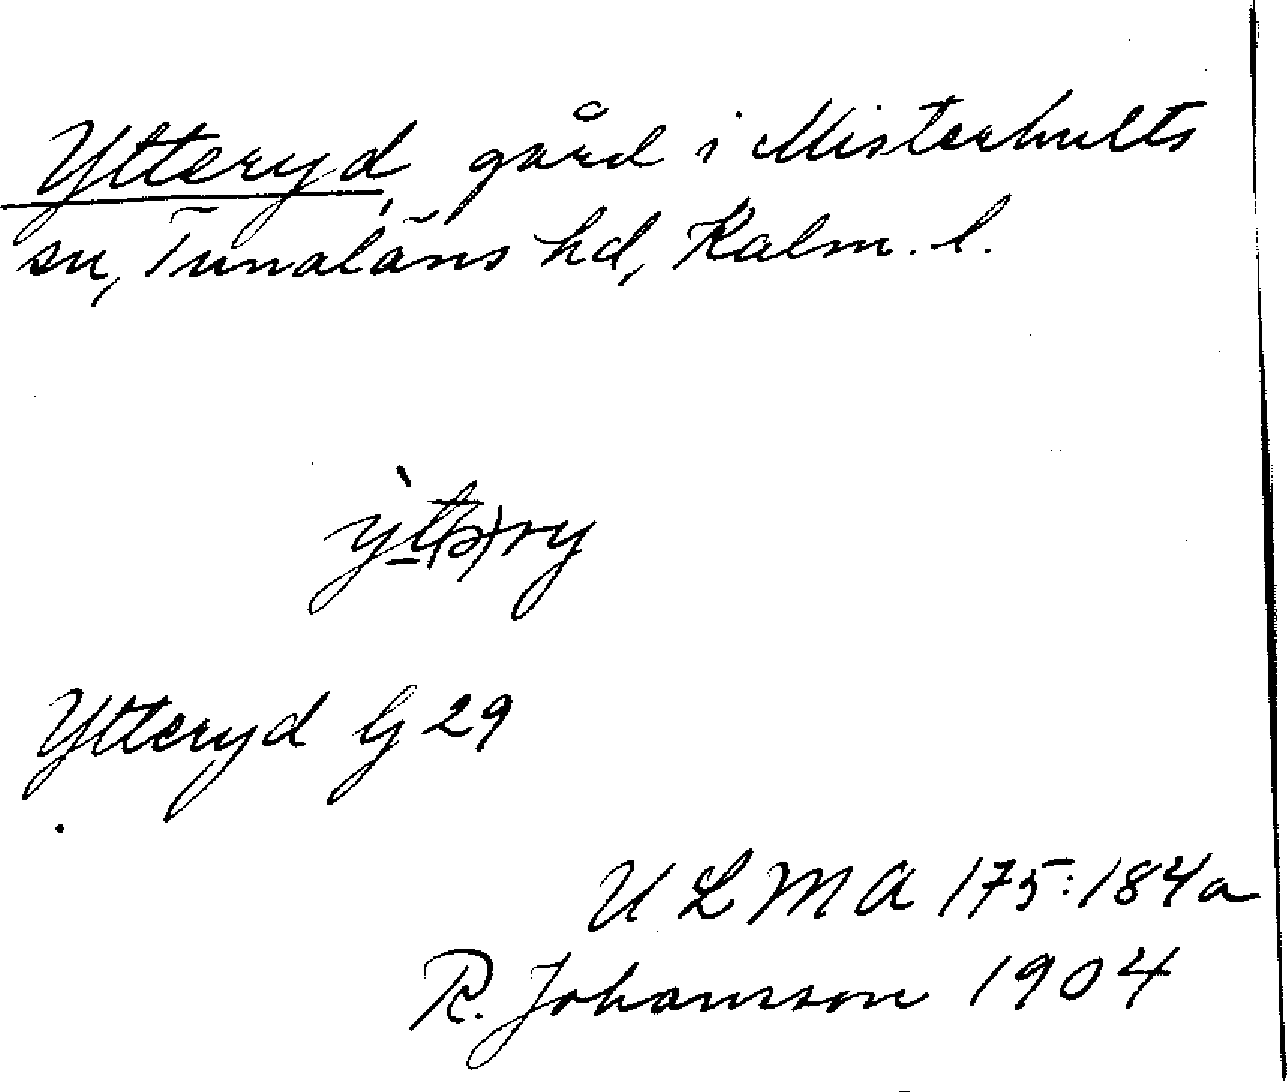 Ytteryd, gård i Misterhults
sn, Tunaläns hd, Kalm. l.
ỳt(ə)ry
Ytteryd G 29
U L M A 175:184a
R. Johansson 1904